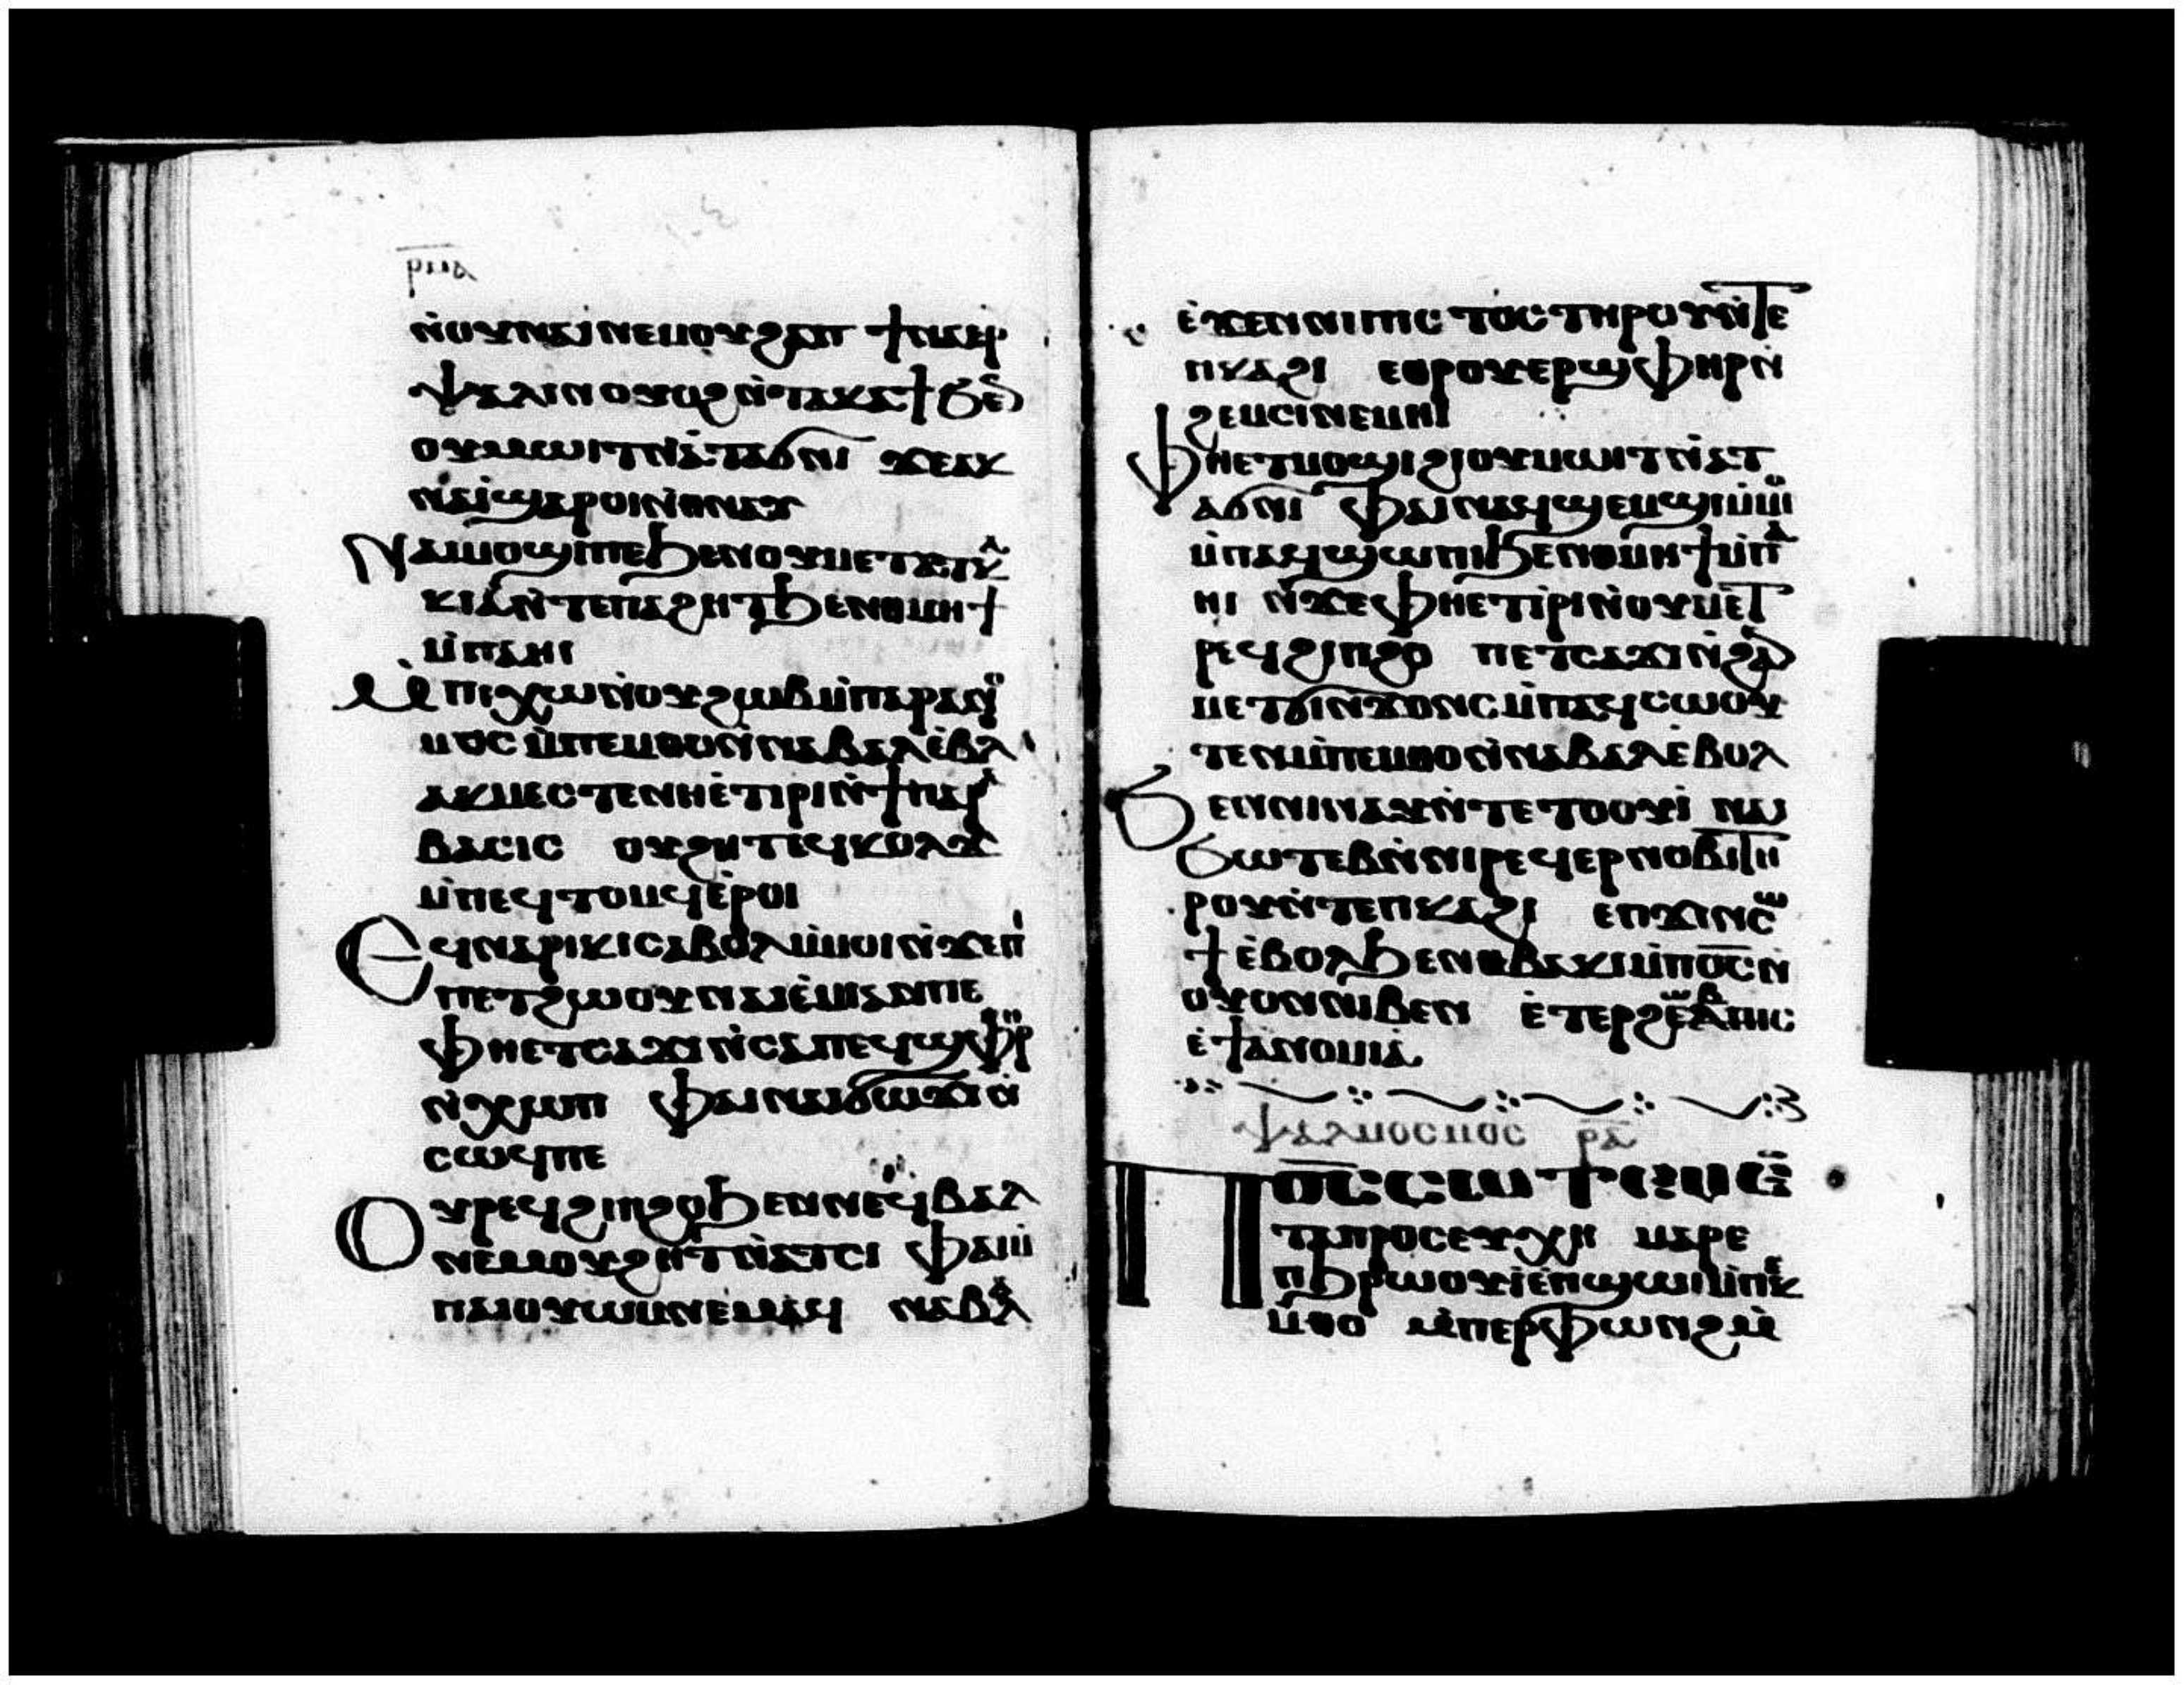 ⲣⲙⲁ
ⲛ̀ⲟⲩⲛⲁⲓ ⲛⲉⲙ ⲟⲩϩⲁⲡ ϯⲛⲁⲉⲣ
ⲯⲁⲗⲓⲛ ⲟⲩⲟϩ ⲛ̀ⲧⲁⲕⲁϯ ϧⲉⲛ
ⲟⲩⲙⲱⲓⲧ ⲛ̀ⲁⲧⲁϭⲛⲓ ϫⲉⲁⲕ
ⲛⲁⲓ̀ ϣⲁⲣⲟⲓ ⲛ̀ⲑⲛⲁⲩ
Ⲛⲁⲓⲙⲟϣⲓ ⲡⲉ ϧⲉⲛ ⲟⲩⲙⲉⲧⲁⲧⲕⲁ
ⲕⲓⲁ ⲛ̀ⲧⲉ ⲡⲁϩⲏⲧ ϧⲉⲛ ⲑⲙⲏϯ
ⲙ̀ⲡⲁⲏⲓ
Ⲙⲡⲓⲭⲱ ⲛ̀ⲟⲩϩⲱⲃ ⲙ̀ⲡⲁⲣⲁⲛⲟ
ⲙⲟⲥ ⲙ̀ⲡⲉⲙⲑⲟ ⲛ̀ⲛⲁⲃⲁⲗ ⲉ̀ⲃⲟⲗ
ⲁⲓⲙⲉⲥⲧⲉ ⲛⲏ ⲉ̀ⲧⲓⲣⲓ ⲛ̀ϯⲡⲁⲣⲁ
ⲃⲁⲥⲓⲥ ⲟⲩϩⲏⲧ ⲉϥⲕⲟⲗϫ
ⲙ̀ⲡⲉϥⲧⲟⲙϥ ⲉ̀ⲣⲟⲓ
Ⲉϥⲛⲁⲣⲓⲕⲓ ⲥⲁⲃⲟⲗ ⲙ̀ⲙⲟⲓ ⲛ̀ϫⲉ ⲡⲓ
ⲡⲉⲧϩⲱⲟⲩ ⲛⲁⲓⲉ̀ⲙⲓ ⲁⲛ ⲡⲉ
ⲫⲏ ⲉⲧⲥⲁϫⲓ ⲛ̀ⲥⲁ ⲡⲉϥϣⲫⲏⲣ
ⲛ̀ⲭⲱⲡ ⲫⲁⲓ ⲛⲁⲓϭⲟϫⲓ ⲛ̀
ⲥⲱϥ ⲡⲉ
Ⲟⲩⲣⲉϥϭⲓⲡϩⲟ ϧⲉⲛ ⲛⲉϥⲃⲁⲗ
ⲛⲉⲙ ⲟⲩϩⲏⲧ ⲛ̀ⲁⲧⲥⲓ ⲫⲁⲓ ⲙ̀
ⲡⲁⲓⲟⲩⲱⲙ ⲛⲉⲙⲁϥ ⲛⲁⲃⲁⲗ
ⲉ̀ϫⲉⲛ ⲛⲓⲡⲓⲥⲧⲟⲥ ⲧⲏⲣⲟⲩ ⲛ̀ⲧⲉ
ⲡⲕⲁϩⲓ ⲉⲑⲣⲟⲩⲉⲣϣⲫⲏⲣ ⲛ̀
ϩⲉⲙⲥⲓ ⲛⲉⲙⲏⲓ
Ⲫⲏ ⲉⲧⲙⲟϣⲓ ϩⲓ ⲟⲩⲙⲱⲓⲧ ⲛ̀ⲁⲧ
ⲁϭⲛⲓ ⲫⲁⲓ ⲛⲁϥϣⲉⲙϣⲓ ⲙ̀ⲙⲟⲓ
ⲙ̀ⲡⲁϥϣⲱⲡⲓ ϧⲉⲛ ⲑⲙⲏϯ ⲙ̀ⲡⲁ
ⲏⲓ ⲛ̀ϫⲉ ⲫⲏ ⲉⲧⲓⲣⲓ ⲛ̀ⲟⲩⲙⲉⲧ
ⲣⲉϥϭⲓⲡϩⲟ ⲡⲉⲧⲥⲁϫⲓ ⲛ̀ϩⲁⲛ
ⲙⲉⲧϭⲓⲛϫⲟⲛⲥ ⲙ̀ⲡⲁϥⲥⲱⲟⲩ
ⲧⲉⲛ ⲙ̀ⲡⲉⲙⲑⲟ ⲛ̀ⲛⲁⲃⲁⲗ ⲉ̀ⲃⲟⲗ
Ϧⲉⲛ ⲛⲓⲛⲁⲩ ⲛ̀ⲧⲉ ⲧⲟⲟⲩⲓ̀ ⲛⲁⲓ
ϧⲱⲧⲉⲃ ⲛ̀ⲛⲓⲣⲉϥⲉⲣⲛⲟⲃⲓ ⲧⲏ
ⲣⲟⲩ ⲛ̀ⲧⲉ ⲡⲕⲁϩⲓ ⲉⲡϫⲓⲛⲥⲱ
ϯ ⲉ̀ⲃⲟⲗ ϧⲉⲛ ⲑⲃⲁⲕⲓ ⲙ̀ⲡⲟ̅ⲥ̅ ⲛ̀
ⲟⲩⲟⲛ ⲛⲓⲃⲉⲛ ⲉ̀ⲧⲉⲣϩⲱⲃ
ⲉ̀ϯⲁⲛⲟⲙⲓⲁ
ⲯⲁⲗⲙⲟⲥ ⲣⲁ
Ⲡⲟ̅ⲥ̅ ⲥⲱⲧⲉⲙ ⲉ̀
ⲧⲁⲡⲣⲟⲥⲉⲩⲭⲏ ⲙⲁⲣⲉ
ⲡⲁϧⲣⲱⲟⲩ ⲓ̀ ⲉ̀ⲡϣⲱⲓ ⲙ̀ⲡⲉⲕ
ⲙ̀ⲑⲟ ⲙ̀ⲡⲉⲣⲫⲱⲛϩ ⲙ̀